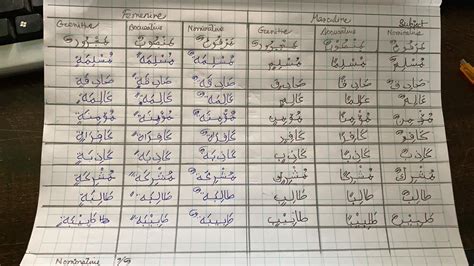 Feminine Masculine Subject
Genitive Accusative Nominative Genitive Accusative Nominative
مَجْرُورٌ مَنْصُوبٌ مَرْفُوعٌ مَجْرُورٌ مَنْصُوبٌ مَرْفُوعٌ
مُسْلِمَةٍ مُسْلِمَةً مُسْلِمَةٌ مُسْلِمٍ مُسْلِمًا مُسْلِمٌ
صَادِقَةٍ صَادِقَةً صَادِقَةٌ صَادِقٍ صَادِقًا صَادِقٌ
عَالِمَةٍ عَالِمَةً عَالِمَةٌ عَالِمٍ عَالِمًا عَالِمٌ
مُؤْمِنَةٍ مُؤْمِنَةً مُؤْمِنَةٌ مُؤْمِنٍ مُؤْمِنًا مُؤْمِنٌ
كَافِرَةٍ كَافِرَةً كَافِرَةٌ كَافِرٍ كَافِرًا كَافِرٌ
كَاذِبَةٍ كَاذِبَةً كَاذِبَةٌ كَاذِبٍ كَاذِبًا كَاذِبٌ
مُشْرِكَةٍ مُشْرِكَةً مُشْرِكَةٌ مُشْرِكٍ مُشْرِكًا مُشْرِكٌ
طَالِبَةٍ طَالِبَةً طَالِبَةٌ طَالِبٍ طَالِبًا طَالِبٌ
Nominative